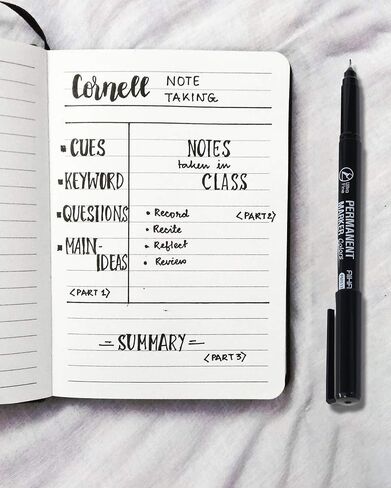 Cornell NOTE
TAKING
CUES
KEYWORD
QUESTIONS
MAIN-
IDEAS
<PART 1>
NOTES
taken in
CLASS
<PART 2>
• Record
• Recite
• Reflect
• Review
– SUMMARY –
<PART 3>
Ultra
Fine
PERMANENT
MARKER Colors